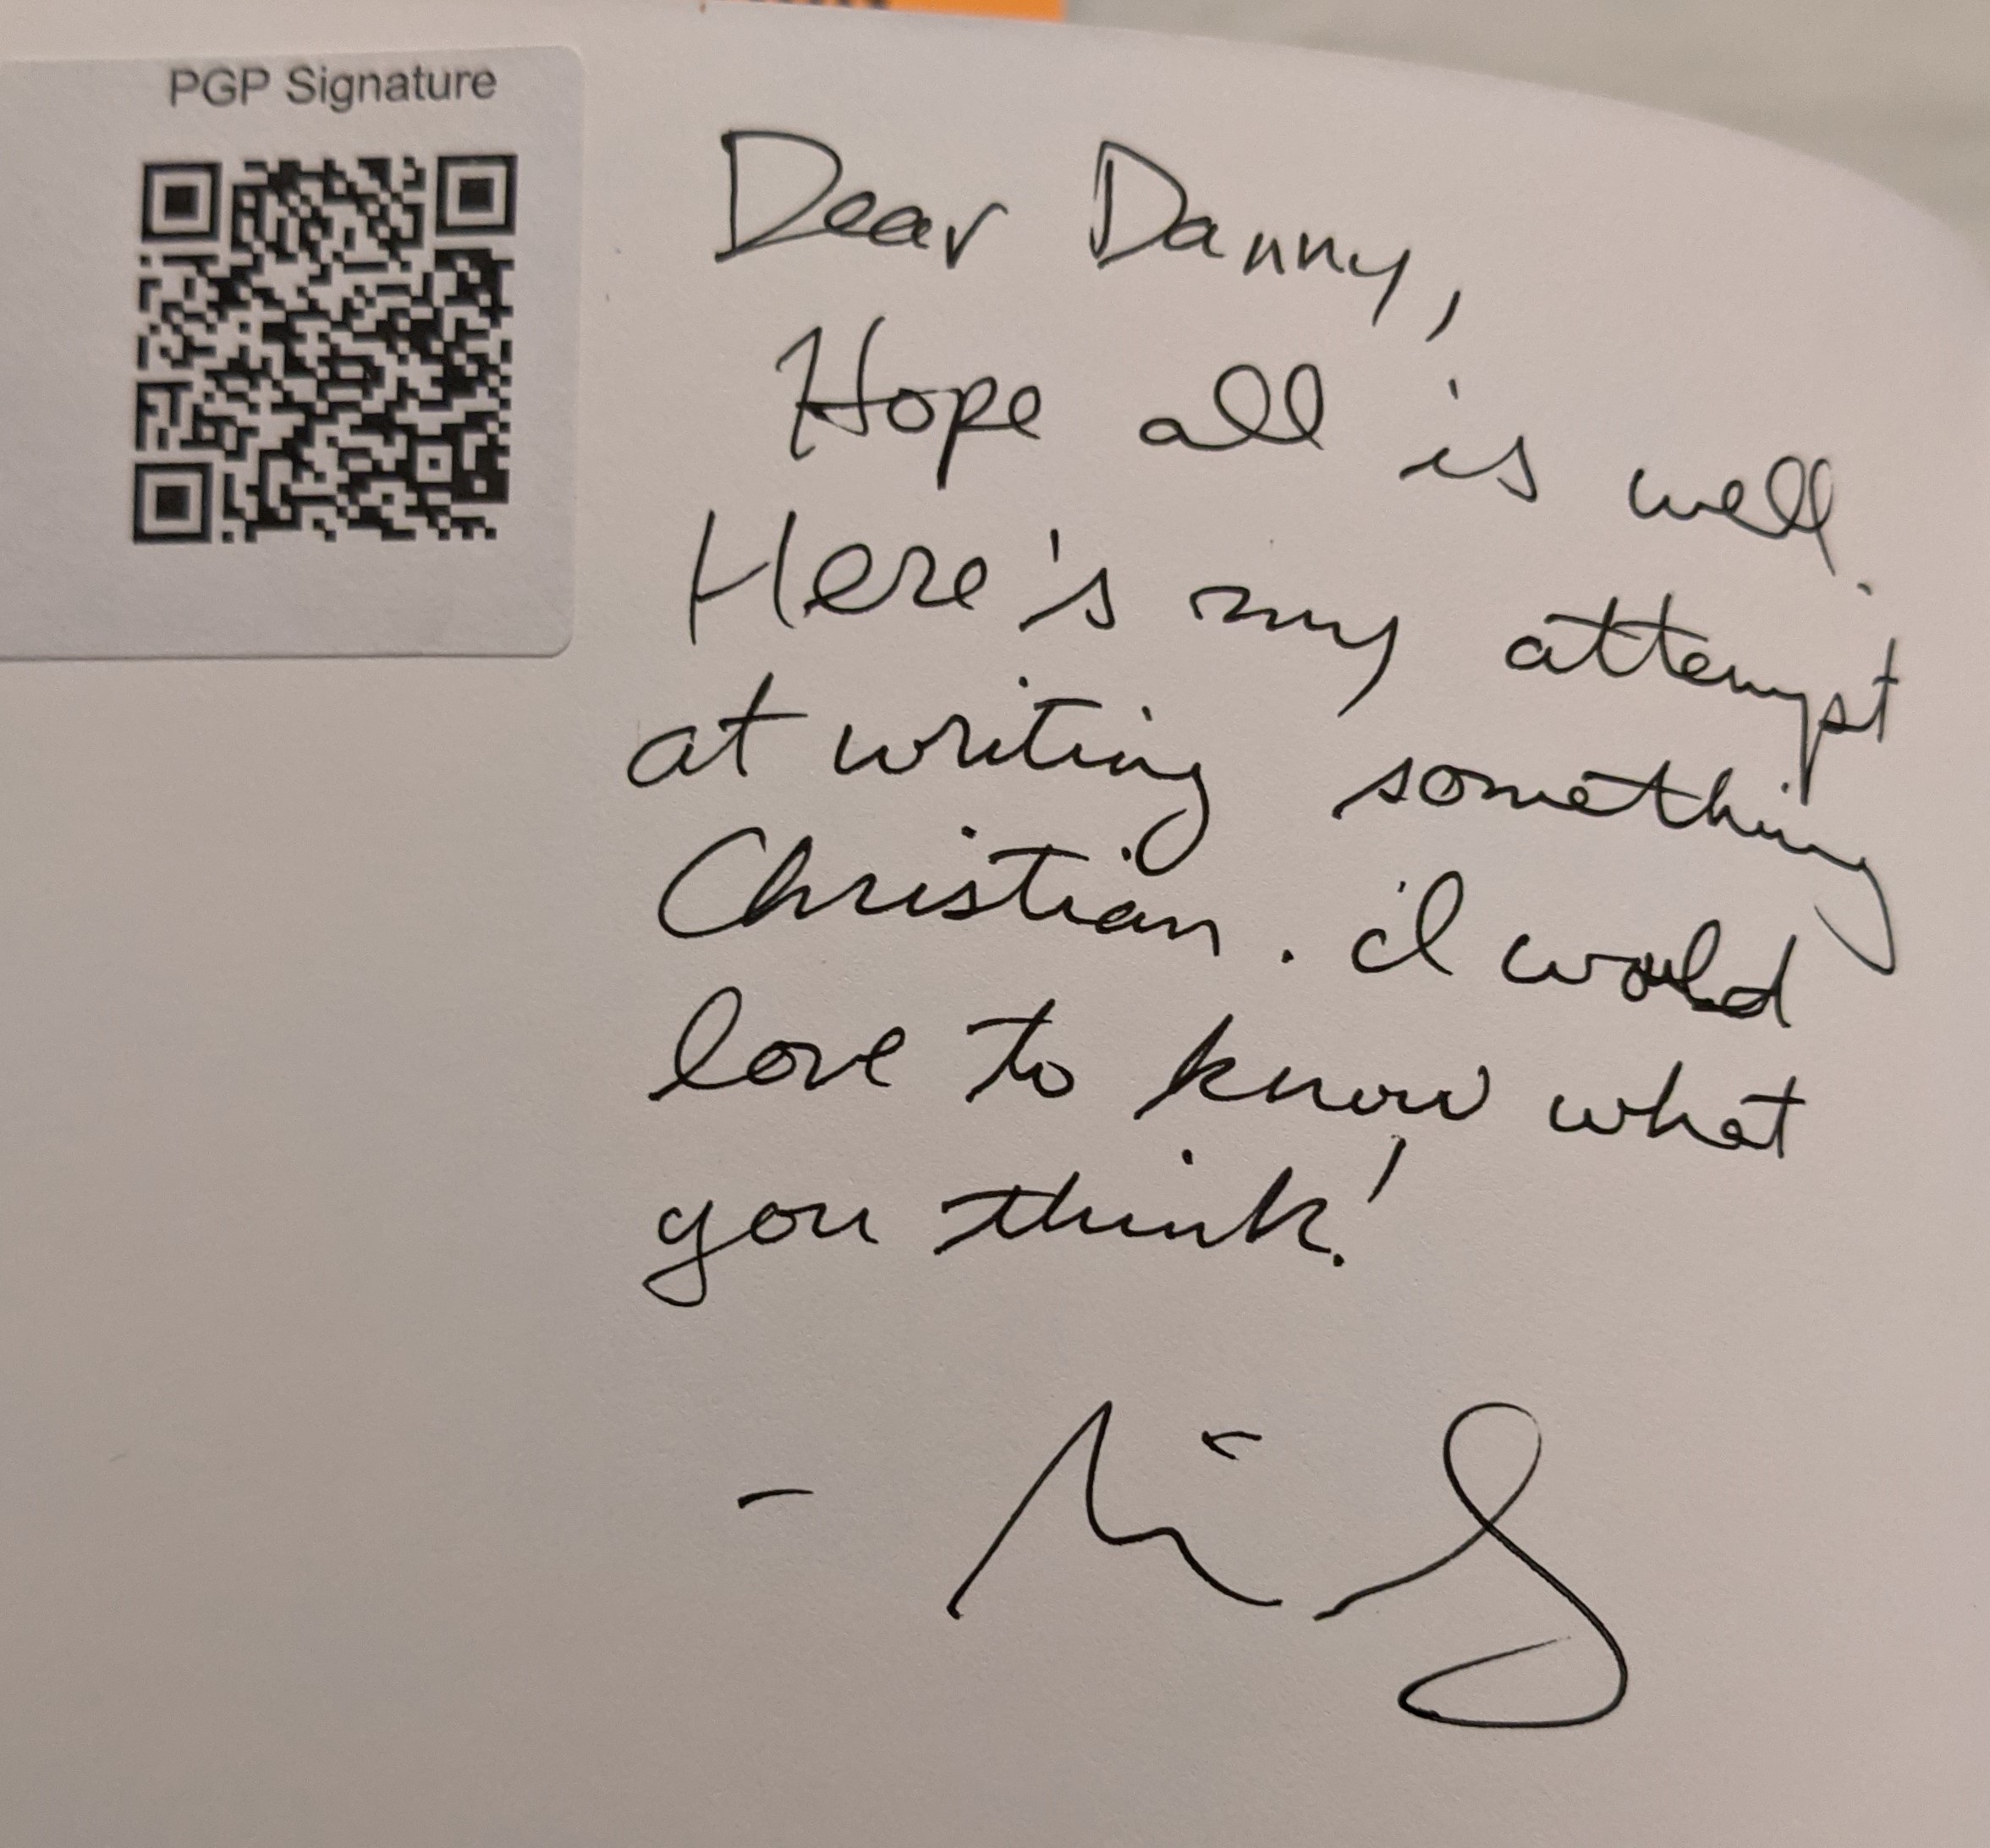 PGP Signature
Dear Danny,
Hope all is well.
Here's my attempt
at writing something
Christian. I would
love to know what
you think!